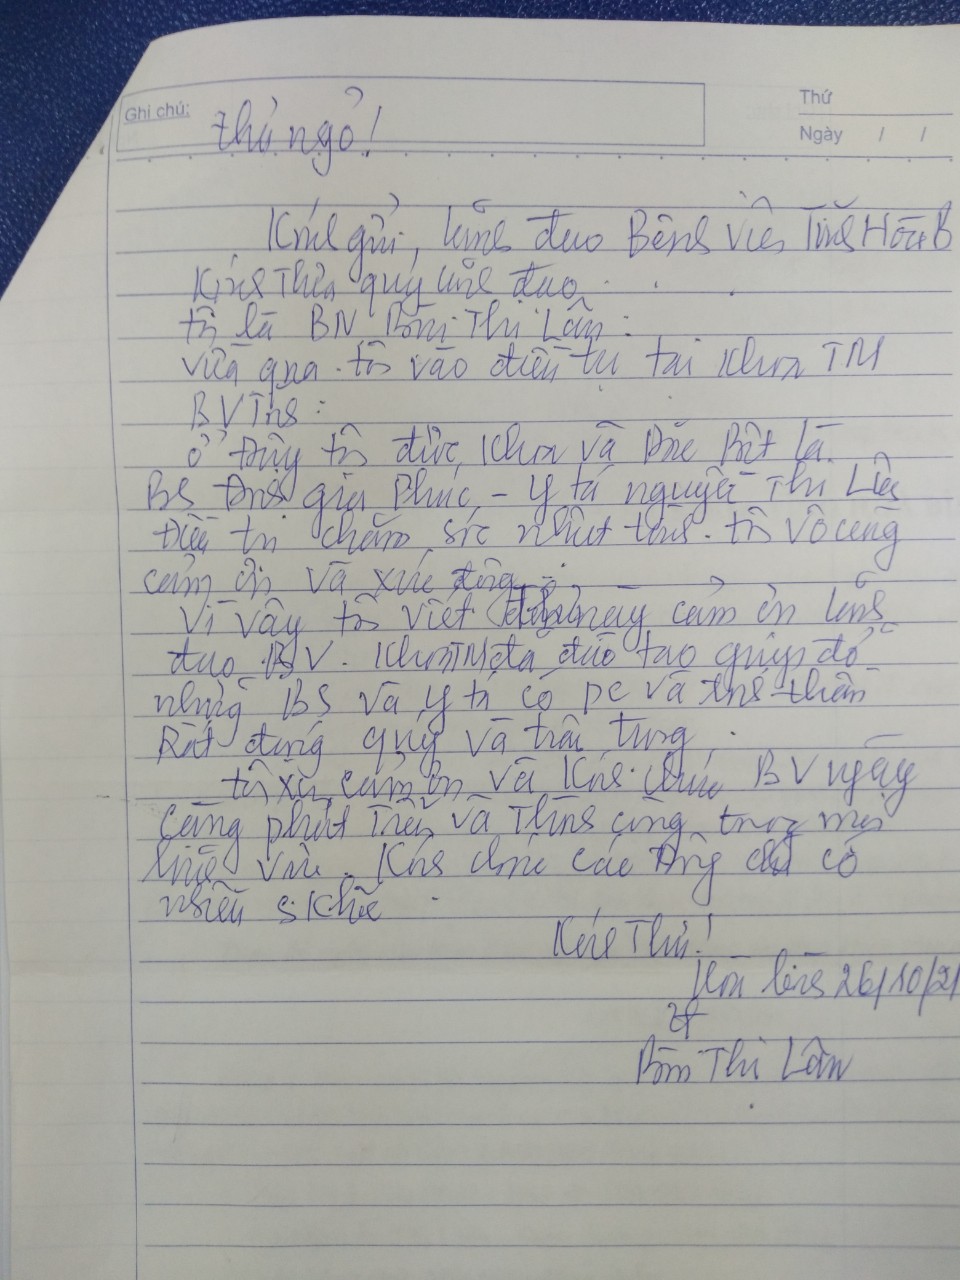 Ghi chú:
Thứ
Ngày / /
thư ngỏ!
Kính gửi, lãnh đạo Bệnh viện Tỉnh Hòa B
Kính Thưa quý lãnh đạo
tôi là BN Thị Lân:
vừa qua tôi vào điều trị tại Khoa TM
BV Tỉnh:
ở Đây tôi được Khoa và Đặc Biệt là
BS gia Phúc - y tá nguyễn Thị
Điều trị chăm sóc nhiệt tình. tôi vô cùng
cảm ơn và xúc động
Vì vậy tôi viết này cảm ơn lãnh
đạo BV. Khoa TM đã đào tạo giúp đỡ
những BS và y tá có pc và tinh thần
Rất đáng quý và trân trọng
tôi xin cảm ơn và Kính chúc BV ngày
càng phát Triển và Thành công trong mọi
lĩnh vực. Kính chúc các có
nhiều s. Khỏe
Kính Thư!
26/10/21
Thị Lân